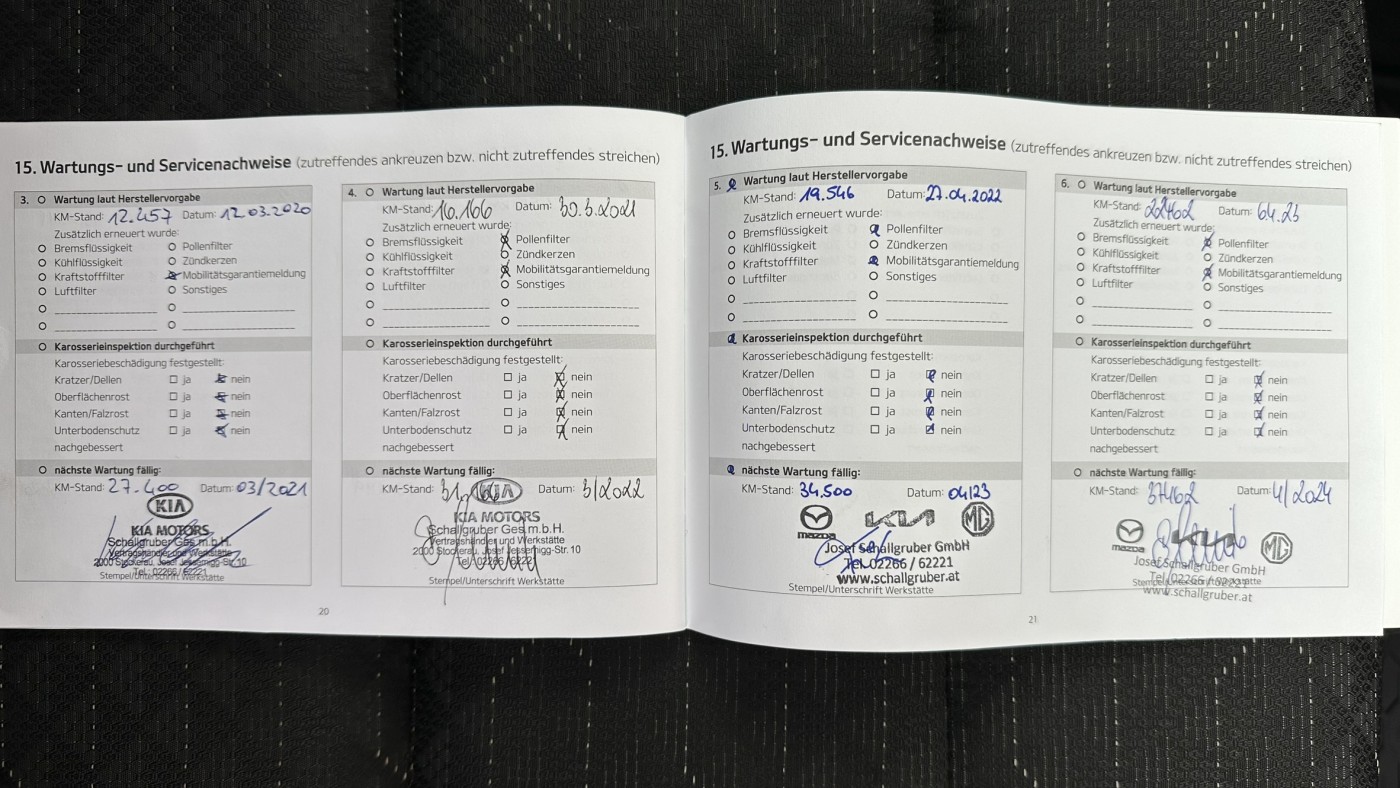 15. Wartungs- und Servicenachweise (zutreffendes ankreuzen bzw. nicht zutreffendes streichen)
3. Wartung laut Herstellervorgabe
KM-Stand: 12.457 Datum: 12.03.2020
Zusätzlich erneuert wurde:
Bremsflüssigkeit Pollenfilter
Kühlflüssigkeit Zündkerzen
Kraftstofffilter Mobilitätsgarantiemeldung
Luftfilter Sonstiges
Karosserieinspektion durchgeführt
Karosseriebeschädigung festgestellt:
Kratzer/Dellen ja nein
Oberflächenrost ja nein
Kanten/Falzrost ja nein
Unterbodenschutz ja nein
nachgebessert
nächste Wartung fällig:
KM-Stand: 27.400 Datum: 03/2021
KIA
KIA MOTORS
Schallgruber Ges.m.b.H.
Vertragshändler und Werkstätte
2000 Stockerau, Josef Jessernigg-Str. 10
Tel.: 02266/62221
Stempel/Unterschrift Werkstätte
4. Wartung laut Herstellervorgabe
KM-Stand: 16.166 Datum: 30.3.2021
Zusätzlich erneuert wurde:
Bremsflüssigkeit Pollenfilter
Kühlflüssigkeit Zündkerzen
Kraftstofffilter Mobilitätsgarantiemeldung
Luftfilter Sonstiges
Karosserieinspektion durchgeführt
Karosseriebeschädigung festgestellt:
Kratzer/Dellen ja nein
Oberflächenrost ja nein
Kanten/Falzrost ja nein
Unterbodenschutz ja nein
nachgebessert
nächste Wartung fällig:
KM-Stand: Datum: 3/2022
KIA
KIA MOTORS
Schallgruber Ges.m.b.H.
Vertragshändler und Werkstätte
2000 Stockerau, Josef Jessernigg-Str. 10
Tel.: 02266/62221
Stempel/Unterschrift Werkstätte
20
15. Wartungs- und Servicenachweise (zutreffendes ankreuzen bzw. nicht zutreffendes streichen)
5. Wartung laut Herstellervorgabe
KM-Stand: 19.546 Datum: 27.04.2022
Zusätzlich erneuert wurde:
Bremsflüssigkeit Pollenfilter
Kühlflüssigkeit Zündkerzen
Kraftstofffilter Mobilitätsgarantiemeldung
Luftfilter Sonstiges
Karosserieinspektion durchgeführt
Karosseriebeschädigung festgestellt:
Kratzer/Dellen ja nein
Oberflächenrost ja nein
Kanten/Falzrost ja nein
Unterbodenschutz ja nein
nachgebessert
nächste Wartung fällig:
KM-Stand: 34.500 Datum: 04/23
mazda KIA MG
Josef Schallgruber GmbH
Tel. 02266 / 62221
www.schallgruber.at
Stempel/Unterschrift Werkstätte
6. Wartung laut Herstellervorgabe
KM-Stand: 22462 Datum: 6.4.23
Zusätzlich erneuert wurde:
Bremsflüssigkeit Pollenfilter
Kühlflüssigkeit Zündkerzen
Kraftstofffilter Mobilitätsgarantiemeldung
Luftfilter Sonstiges
Karosserieinspektion durchgeführt
Karosseriebeschädigung festgestellt:
Kratzer/Dellen ja nein
Oberflächenrost ja nein
Kanten/Falzrost ja nein
Unterbodenschutz ja nein
nachgebessert
nächste Wartung fällig:
KM-Stand: 37462 Datum: 4/2024
mazda MG
Josef Schallgruber GmbH
Tel. 02266 / 62221
Stempel/Unterschrift Werkstätte
www.schallgruber.at
21